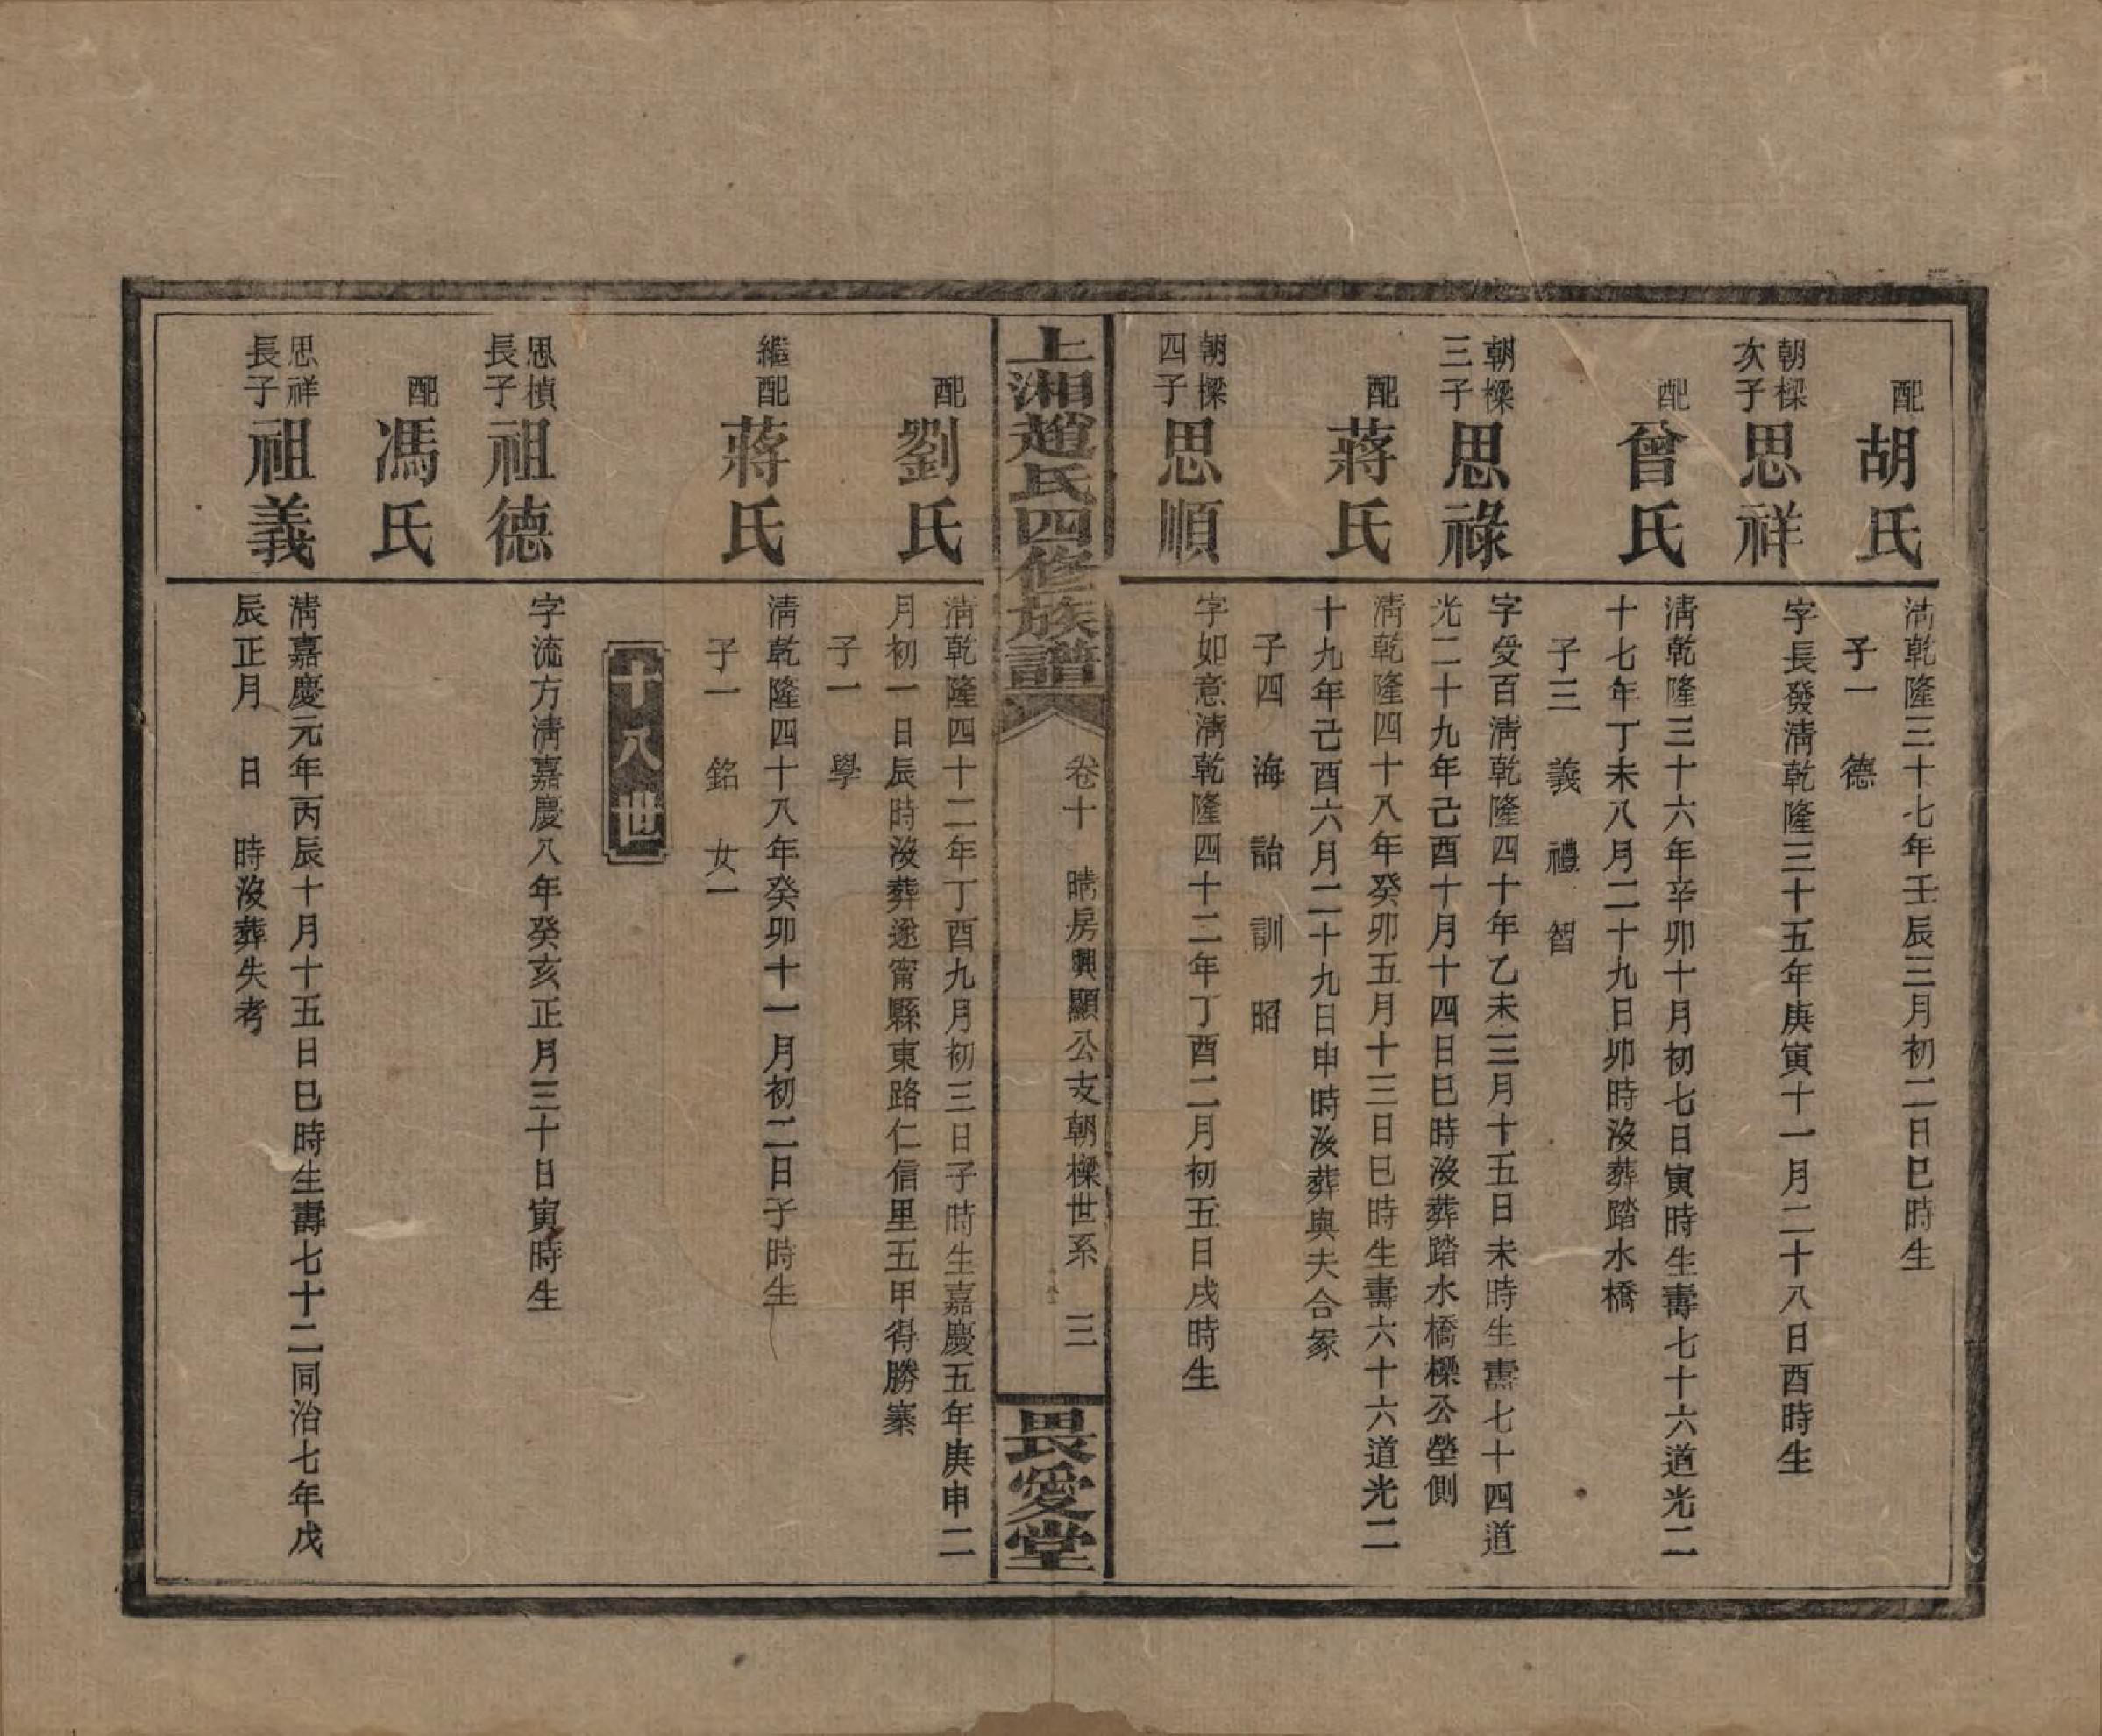 配
胡氏
清乾隆三十七年壬辰三月初二日巳時生
子一 德
朝樑
次子
思祥
字長發清乾隆三十五年庚寅十一月二十八日酉時生
配
曾氏
清乾隆三十六年辛卯十月初七日寅時生壽七十六道光二
十七年丁未八月二十九日卯時沒葬踏水橋
子三 義 禮 智
朝樑
三子
思祿
字受百清乾隆四十年乙未三月十五日未時生壽七十四道
光二十九年己酉十月十四日巳時沒葬踏水橋樑公塋側
配
蔣氏
清乾隆四十八年癸卯五月十三日巳時生壽六十六道光二
十九年己酉六月二十九日申時沒葬與夫合冢
子四 海 詒 訓 昭
朝樑
四子
思順
字如意清乾隆四十二年丁酉二月初五日戌時生
上湘趙氏四修族譜
卷十 晴房興顯公支朝樑世系 三
畏愛堂
配
劉氏
清乾隆四十二年丁酉九月初三日子時生嘉慶五年庚申二
月初一日辰時沒葬遂甯縣東路仁信里五甲得勝寨
子一 學
繼配
蔣氏
清乾隆四十八年癸卯十一月初二日子時生
子一 銘 女一
十八世
思楨
長子
祖德
字流方清嘉慶八年癸亥正月三十日寅時生
配
馮氏
思祥
長子
祖義
清嘉慶元年丙辰十月十五日巳時生壽七十二同治七年戊
辰正月 日 時沒葬失考